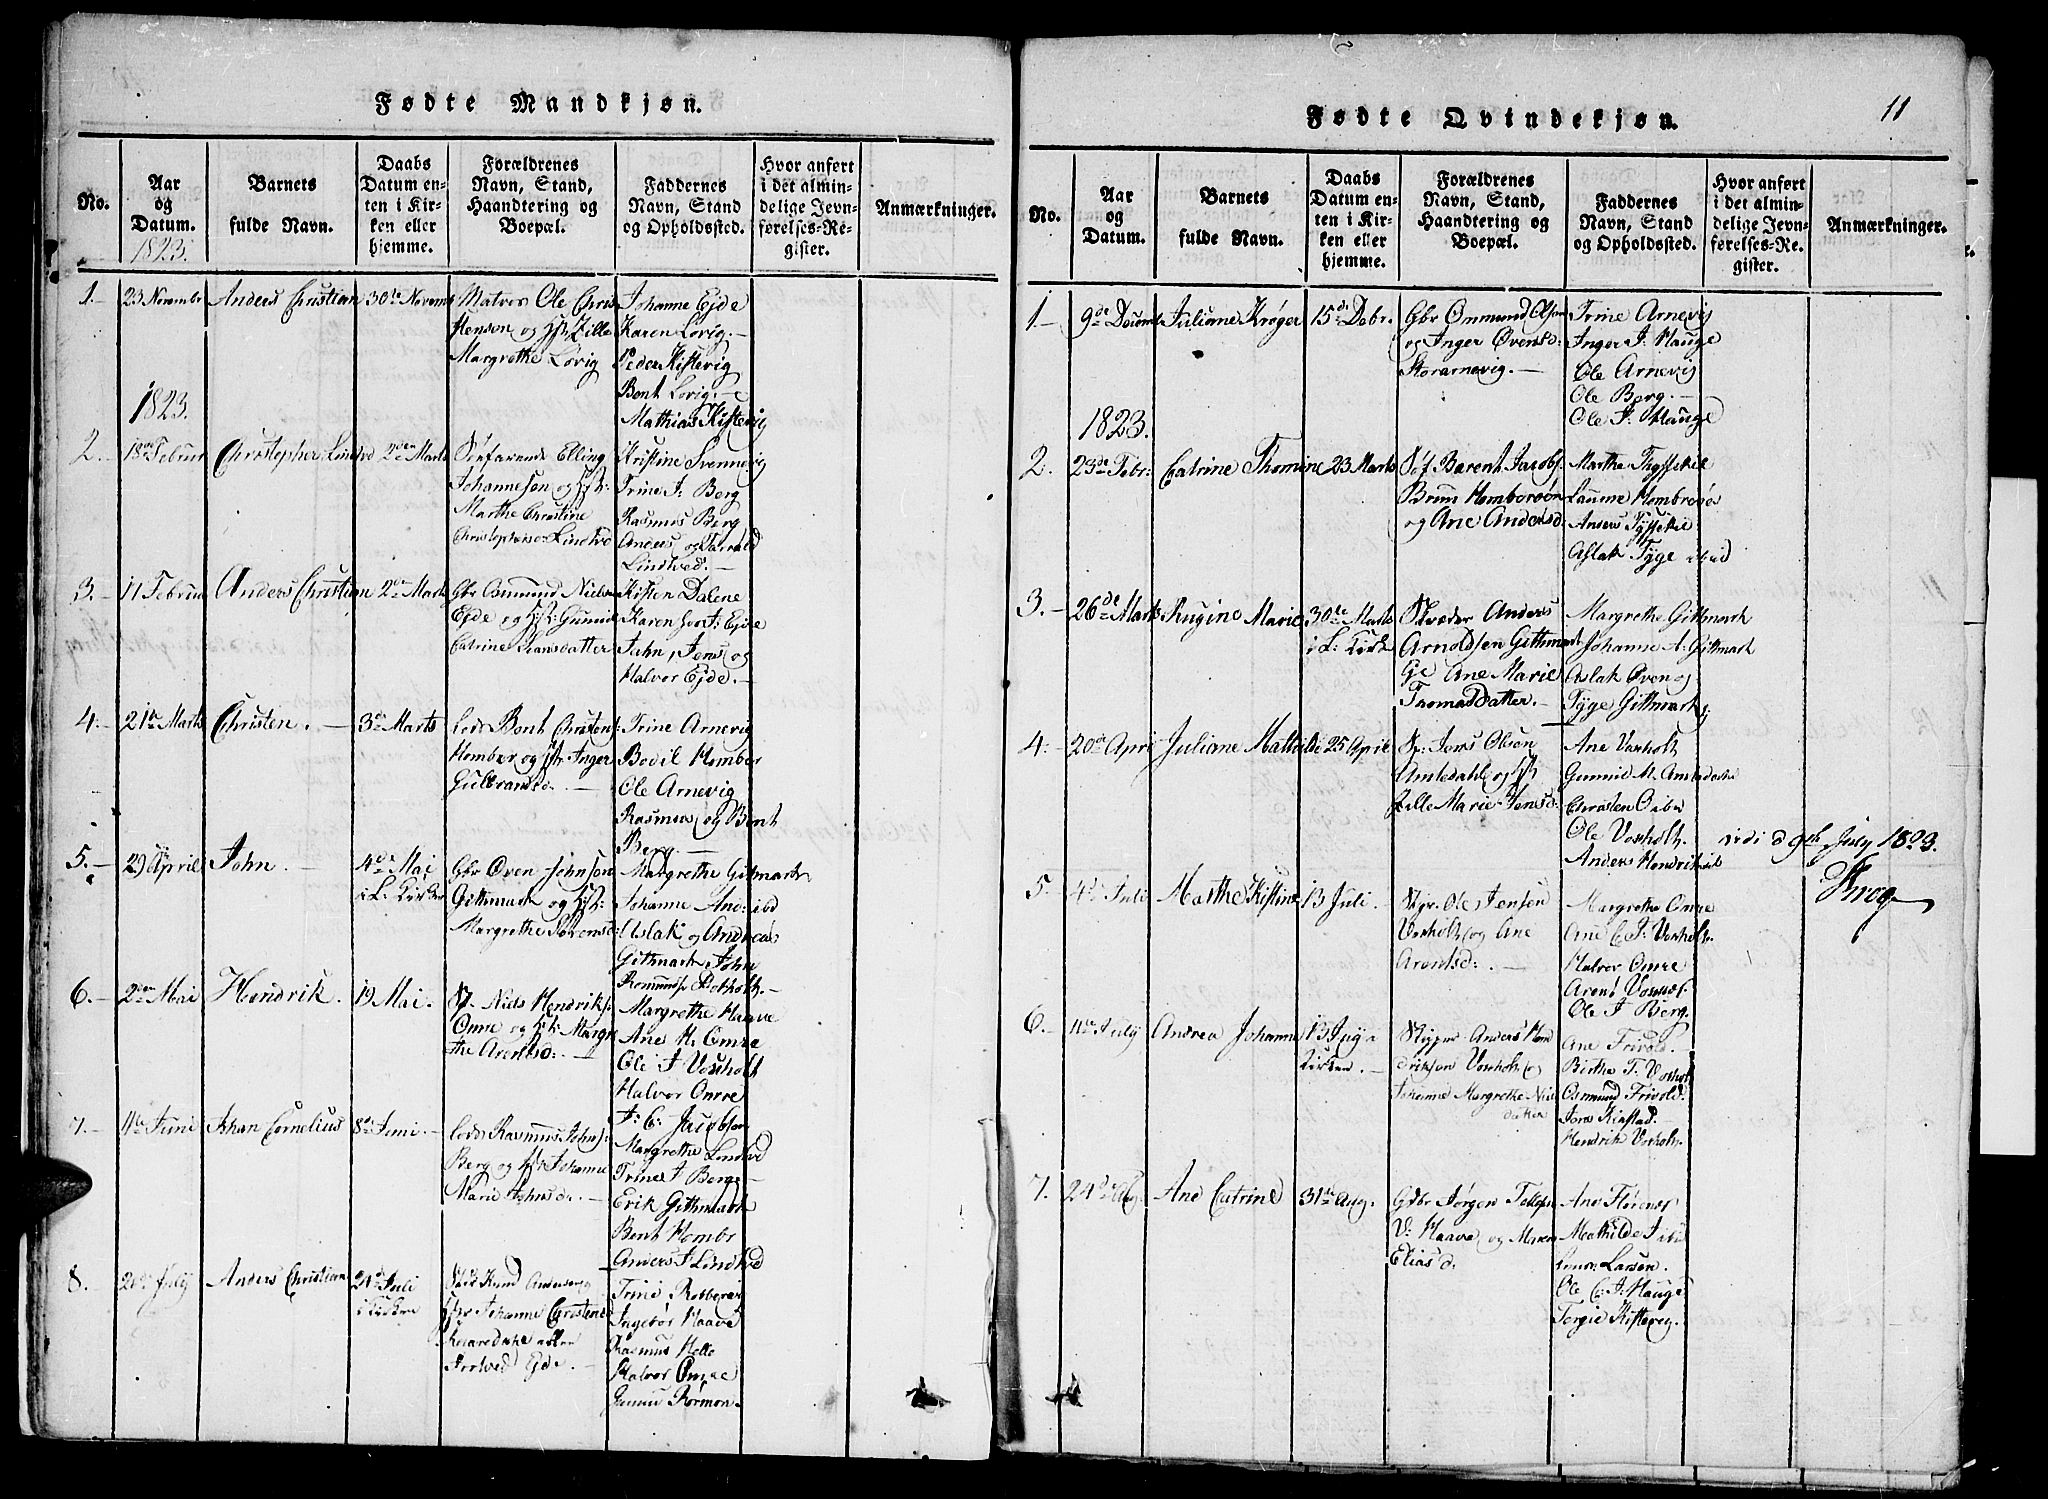 Fødte Mandkjøn.
No.
Aar og Datum.
Barnets fulde Navn.
Daabs Datum enten i Kirken eller hjemme.
Forældrenes Navn, Stand, Haandtering og Boepæl.
Faddernes Navn, Stand og Opholdssted.
Hvor anført i det almindelige Jevnførelses-Register.
Anmærkninger.
1823.
1.
23 Novembr
Anders Christian
30te Novemb
Matros Ole Chris
tenson og Hst: Zille
Margrethe Lovig
Johanne Ejde
Karen Lovig.
Peder Kistevig
Bent Lovig.
Mathias Kistevig
1823.
2.
18de Februr
Christopher Lindtvd
2den Marts
Søefarende Elling
Johannesøn og Hst:
Marthe Christine
Christophersd Lindtvd
Kristine Svennevig
Trine J: Berg
Rasmus Berg
Anders og Tarald
Lindtved.
3.
11 Februar
Anders Christian
2den Marts
Gbr Osmund Niels
Ejde og Hst: Gunild
Catrine Hansdatter
Kisten Dalene
Karen J: Ejde
John, Jens og
Halvor Ejde.
4.
21de Marts
Christen.
3de Marts
Lods Bent Christens:
Hombor og Hst Inger
Gulbransd.
Trine Arnevig
Bodil Hombor
Ole Arnevig
Rasmus og Bent
Berg.
5.
29 April
John.
4de Mai
i L. Kirken
Gbr Oven Johnson
Gitmark og Hst:
Margrethe Sørensd:
Margrethe Gitmark
Johanne And: ibd
Aslak og Andreas
Gitmark, John
6.
2den Mai
Hendrik.
19 Mai.
Sk. Niels Hendriks:
Omre og Hst: Margre
the Arentsd:
Margrethe Haave
Ane H. Omre
Ole J Voxholt
Halvor Omre
J: C: Jacobsen
7.
4de Juni
Johan Cornelius
8de Juni
Lods Rasmus Johns:
Berg og Hst Johanne
Marie Johnsd.
Margrethe Lindtvd
Trine J Berg
Erik Gitmark
Bent Hombr
Anders J Lindtvd
8.
20de July
Anders Christian
20de Juli
i Kirken
Knud Anders:
Johanne Christensd
Ejde.
Trine
Ingebor Haave
Rasmus Helle
Halvor Omre
Gunuu Rørmon.
Fødte Qvindekjøn.
11
No.
Aar og Datum.
Barnets fulde Navn.
Daabs Datum enten i Kirken eller hjemme.
Forældrenes Navn, Stand, Haandtering og Boepæl.
Faddernes Navn, Stand og Opholdssted.
Hvor anført i det almindelige Jevnførelses-Register.
Anmærkninger.
1.
9de Decemb
Juliane Krøger
15de Debr.
Gbr Onmund Olsen
og Inger Øvensd:
Storarnevig.
Trine Arnevig
Inger J: Hauge
Ole Arnevig
Ole Berg.
Ole J: Hauge
1823.
2.
23de Febr:
Catrine Thomine
23 Marts
Søf Barent Jacobs:
Bruun Homborsøn
og Ane Andersd:
Marthe
Hombrsøe
Anders
Aslak Tyge ibid
3.
26de Marts
Rugine Marie
30te Marts
i L. Kirke
Skræder Anders
Arnoldsen Gitmark
Ane Marie
Thomasdatter.
Margrethe Gitmark
Johanne A: Gitmark
Aslak Øven og
Tyge Gitmark
4.
20de Apri
Juliane Mathilde
25 April
Sk: Jens Olsen
Amledahl og Hst
Zille Marie Jensd:
Ane Voxholt
Gunnil M. Amledahl
Christen Eibe
Ole Voxholt.
Anders Hendriks
vidi d 9de July 1823.
Krog
5.
4de Juli
Marthe Kistine
13 Juli.
Skpr. Ole Jensen
Voxholt og Ane
Arentsd:
Margrethe Omre
Ane C. J: Voxholt.
Halvor Omre
Arent Voxholt.
Ole J Berg.
6.
11te July
Andrea Johanne
13 July i
Kirken.
Skipper Anders Hen
driksen Voxholt og
Johanne Margrethe Niels
datter
Ane Frivold.
Birthe T. Voxholt
Osmund Frivold.
Jens Kiafstad.
Hendrik Voxholt.
7.
24de Aug.
Ane Catrine
31te Aug.
Gdbr Jørgen Tellefs
V: Haave og Maren
Eliasd:
Ane Florenes
Mathilde J ibd
Larsen.
Ole C: J: Hauge
Torgie Kistevig.